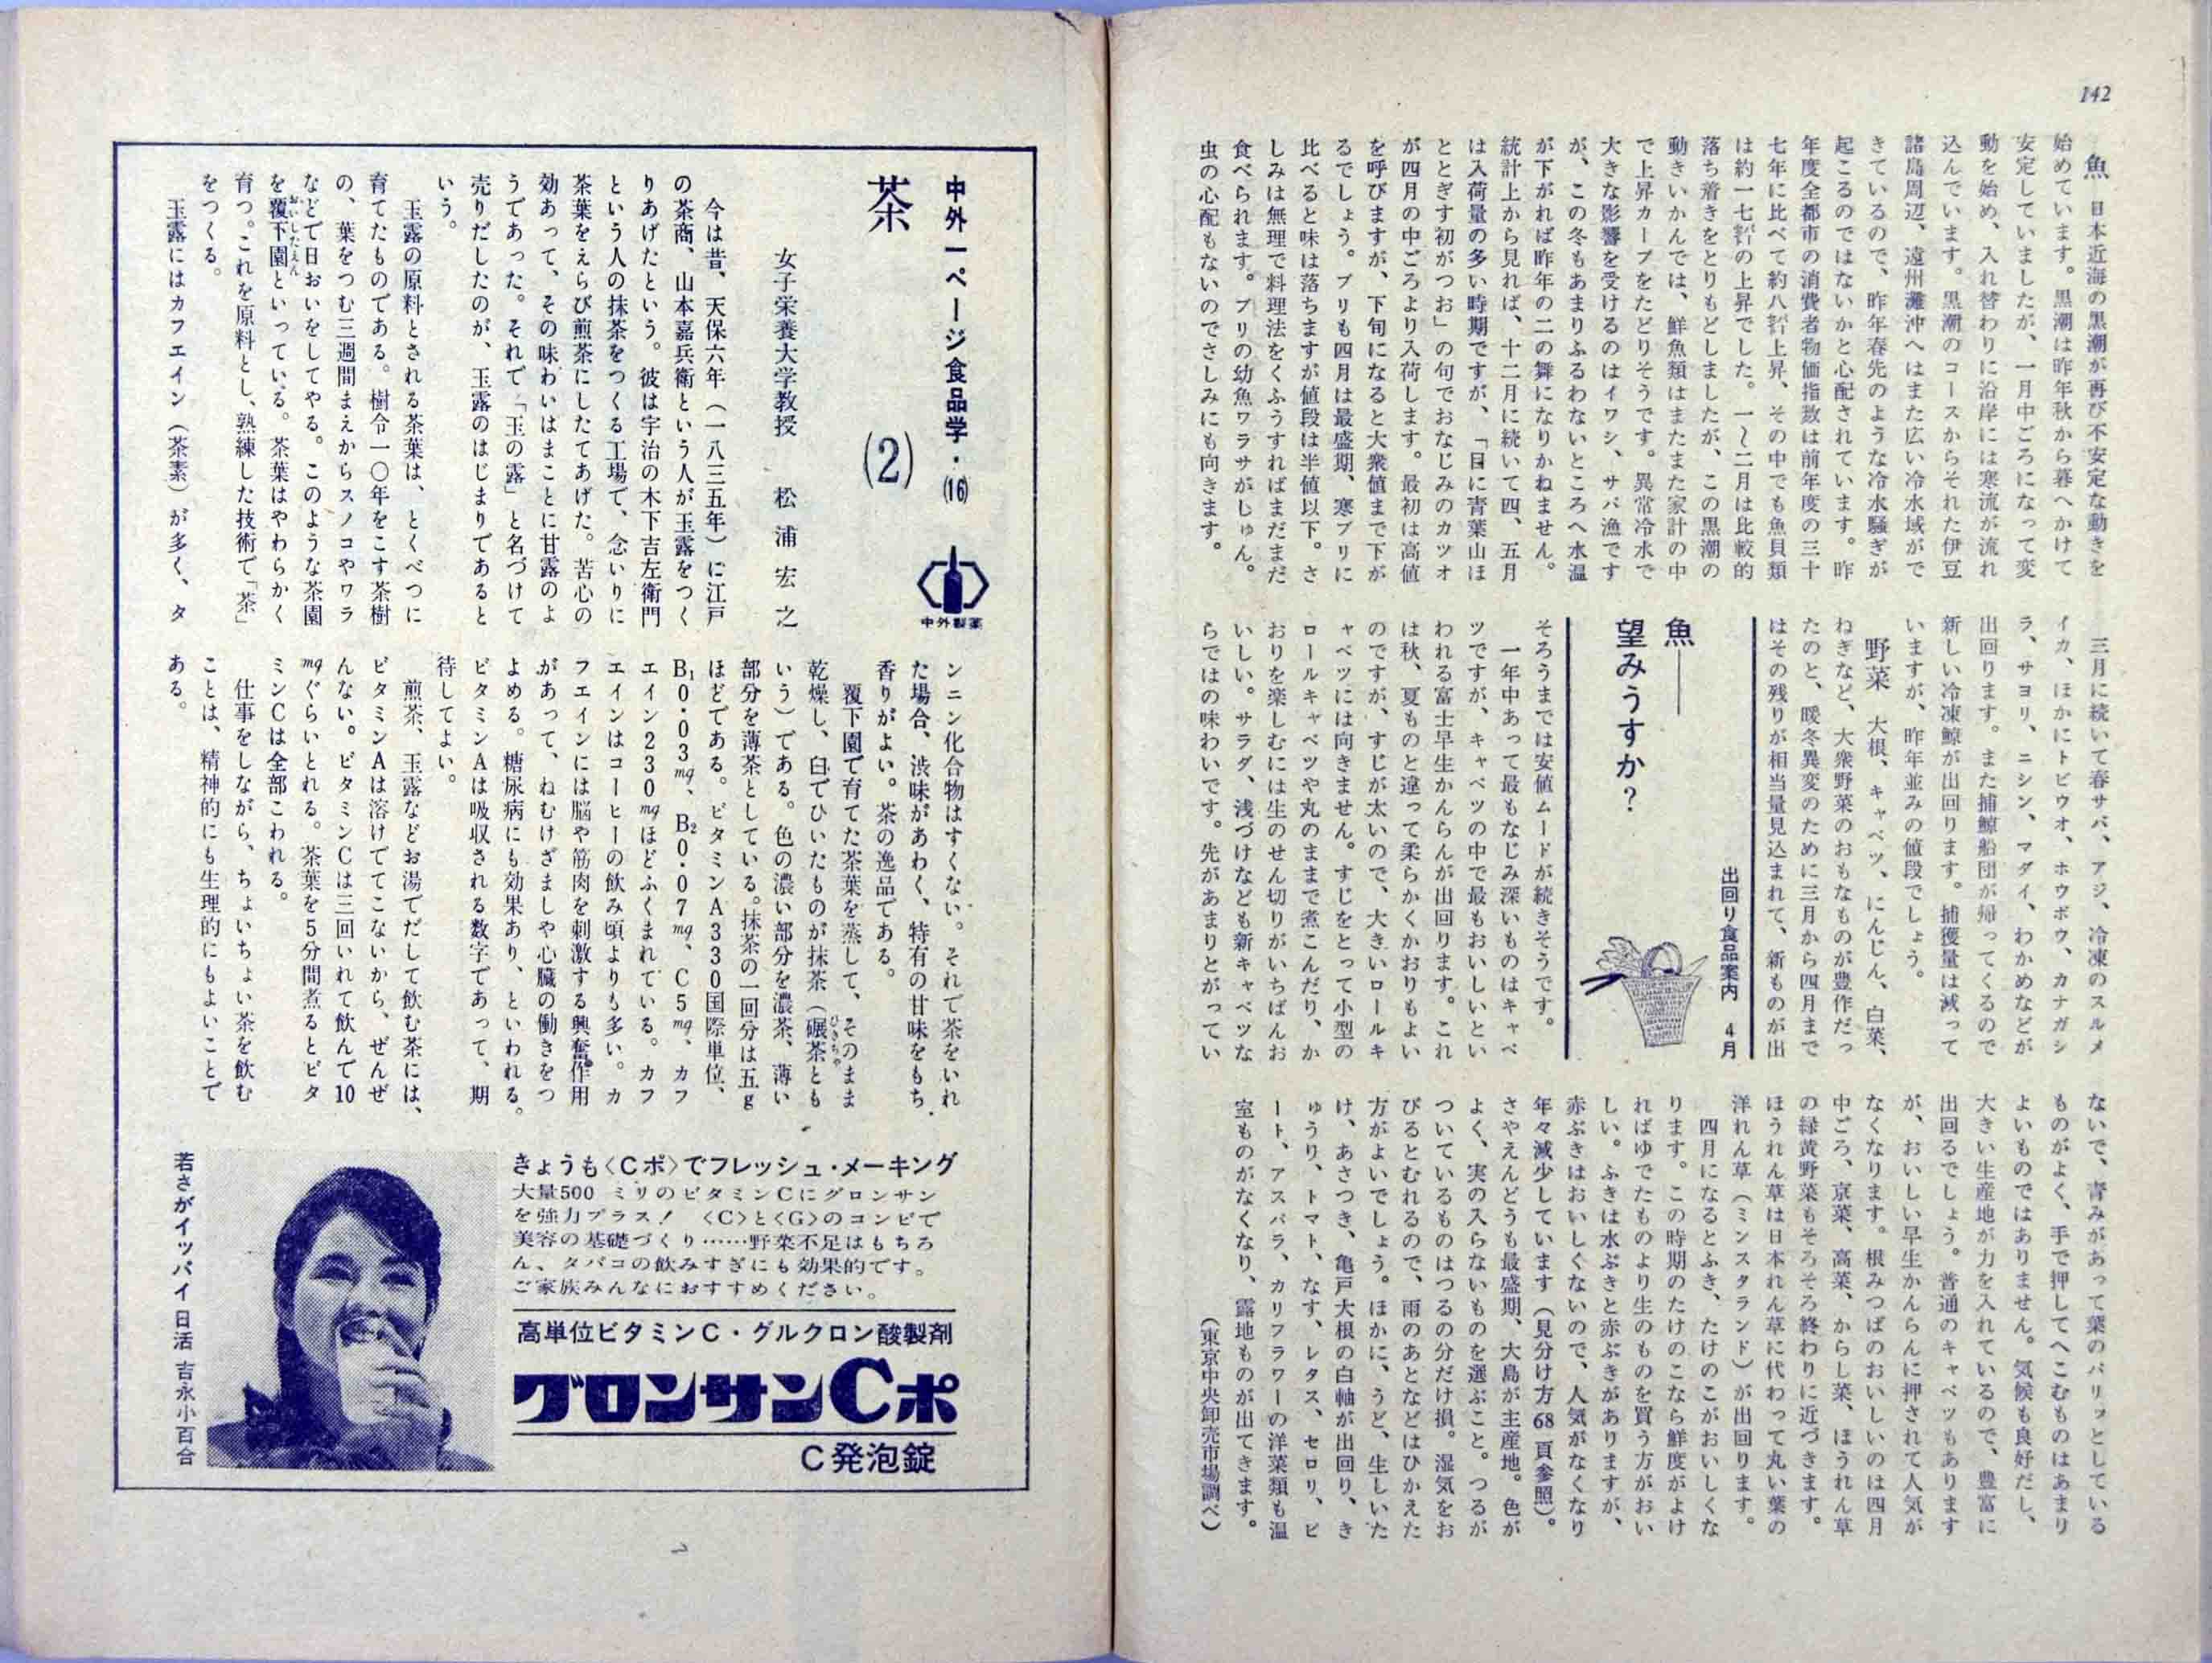 142
魚　日本近海の黒潮が再び不安定な動きを
始めています。黒潮は昨年秋から暮へかけて
安定していましたが、一月中ごろになって変
動を始め、入れ替わりに沿岸には寒流が流れ
込んでいます。黒潮のコースからそれた伊豆
諸島周辺、遠州灘沖へはまた広い冷水域がで
きているので、昨年春先のような冷水騒ぎが
起こるのではないかと心配されています。昨
年度全都市の消費者物価指数は前年度の三十
七年に比べて約八㌫上昇、その中でも魚貝類
は約一七㌫の上昇でした。一〜二月は比較的
落ち着きをとりもどしましたが、この黒潮の
動きいかんでは、鮮魚類はまたまた家計の中
で上昇カーブをたどりそうです。異常冷水で
大きな影響を受けるのはイワシ、サバ漁です
が、この冬もあまりふるわないところへ水温
が下がれば昨年の二の舞になりかねません。
統計上から見れば、十二月に続いて四、五月
は入荷量の多い時期ですが、「目に青葉山ほ
ととぎす初がつお」の句でおなじみのカツオ
が四月の中ごろより入荷します。最初は高値
を呼びますが、下旬になると大衆値まで下が
るでしょう。ブリも四月は最盛期、寒ブリに
比べると味は落ちますが値段は半値以下。さ
しみは無理で料理法をくふうすればまだまだ
食べられます。ブリの幼魚ワラサがしゅん。
虫の心配もないのでさしみにも向きます。
三月に続いて春サバ、アジ、冷凍のスルメ
イカ、ほかにトビウオ、ホウボウ、カナガシ
ラ、サヨリ、ニシン、マダイ、わかめなどが
出回ります。また捕鯨船団が帰ってくるので
新しい冷凍鯨が出回ります。捕獲量は減って
いますが、昨年並みの値段でしょう。
野菜　大根、キャベツ、にんじん、白菜、
ねぎなど、大衆野菜のおもなものが豊作だっ
たのと、暖冬異変のために三月から四月まで
はその残りが相当量見込まれて、新ものが出
出回り食品案内　4月
魚――
望みうすか？
そろうまでは安値ムードが続きそうです。
一年中あって最もなじみ深いものはキャベ
ツですが、キャベツの中で最もおいしいとい
われる富士早生かんらんが出回ります。これ
は秋、夏ものと違って柔らかくかおりもよい
のですが、すじが太いので、大きいロールキ
ャベツには向きません。すじをとって小型の
ロールキャベツや丸のままで煮こんだり、か
おりを楽しむには生のせん切りがいちばんお
いしい。サラダ、浅づけなども新キャベツな
らではの味わいです。先があまりとがってい
ないで、青みがあって葉のパリッとしている
ものがよく、手で押してへこむものはあまり
よいものではありません。気候も良好だし、
大きい生産地が力を入れているので、豊富に
出回るでしょう。普通のキャベツもあります
が、おいしい早生かんらんに押されて人気が
なくなります。根みつばのおいしいのは四月
中ごろ、京菜、高菜、からし菜、ほうれん草
の緑黄野菜もそろそろ終わりに近づきます。
ほうれん草は日本れん草に代わって丸い葉の
洋れん草（ミンスタランド）が出回ります。
四月になるとふき、たけのこがおいしくな
ります。この時期のたけのこなら鮮度がよけ
ればゆでたものより生のものを買う方がおい
しい。ふきは水ぶきと赤ぶきがありますが、
赤ぶきはおいしくないので、人気がなくなり
年々減少しています（見分け方68頁参照）。
さやえんどうも最盛期、大島が主産地。色が
よく、実の入らないものを選ぶこと。つるが
ついているものはつるの分だけ損。湿気をお
びるとむれるので、雨のあとなどはひかえた
方がよいでしょう。ほかに、うど、生しいた
け、あさつき、亀戸大根の白軸が出回り、き
ゅうり、トマト、なす、レタス、セロリ、ビ
ート、アスパラ、カリフラワーの洋菜類も温
室ものがなくなり、露地ものが出てきます。
（東京中央卸売市場調べ）
中外一ページ食品学・(16)
中外製薬
茶　(2)
女子栄養大学教授　松浦宏之
今は昔、天保六年（一八三五年）に江戸
の茶商、山本嘉兵衛という人が玉露をつく
りあげたという。彼は宇治の木下吉左衛門
という人の抹茶をつくる工場で、念いりに
茶葉をえらび煎茶にしたてあげた。苦心の
効あって、その味わいはまことに甘露のよ
うであった。それで「玉の露」と名づけて
売りだしたのが、玉露のはじまりであると
いう。
玉露の原料とされる茶葉は、とくべつに
育てたものである。樹令一〇年をこす茶樹
の、葉をつむ三週間まえからスノコやワラ
などで日おいをしてやる。このような茶園
を覆下園といっている。茶葉はやわらかく
おいしたえん
育つ。これを原料とし、熟練した技術で「茶」
をつくる。
玉露にはカフエイン（茶素）が多く、タ
ンニン化合物はすくない。それで茶をいれ
た場合、渋味があわく、特有の甘味をもち、
香りがよい。茶の逸品である。
覆下園で育てた茶葉を蒸して、そのまま
乾燥し、臼でひいたものが抹茶（碾茶とも
ひきちゃ
いう）である。色の濃い部分を濃茶、薄い
部分を薄茶としている。抹茶の一回分は五g
ほどである。ビタミンA330国際単位、
B₁0・03㎎、B₂0・07㎎、C5㎎、カフ
エイン230㎎ほどふくまれている。カフ
エインはコーヒーの飲み頃よりも多い。カ
フエインには脳や筋肉を刺激する興奮作用
があって、ねむけざましや心臓の働きをつ
よめる。糖尿病にも効果あり、といわれる。
ビタミンAは吸収される数字であって、期
待してよい。
煎茶、玉露などお湯でだして飲む茶には、
ビタミンAは溶けてでてこないから、ぜんぜ
んない。ビタミンCは三回いれて飲んで10
㎎ぐらいとれる。茶葉を5分間煮るとビタ
ミンCは全部こわれる。
仕事をしながら、ちょいちょい茶を飲む
ことは、精神的にも生理的にもよいことで
ある。
きょうも〈Cポ〉でフレッシュ・メーキング
大量500 ミリのビタミンCにグロンサン
を強力プラス！　〈C〉と〈G〉のコンビで
美容の基礎づくり……野菜不足はもちろ
ん、タバコの飲みすぎにも効果的です。
ご家族みんなにおすすめください。
高単位ビタミンC・グルクロン酸製剤
グロンサンCポ
C発泡錠
若さがイッパイ 日活 吉永小百合